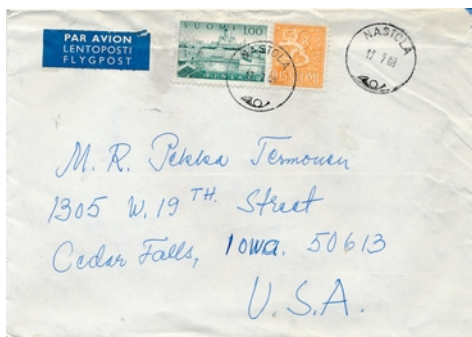 PAR AVION
LENTOPOSTI
FLYGPOST
SUOMI 1.00
FINLAND
0.15 SUOMI
NASTOLA
NASTOLA
17 7 68
M. R. Pekka Termonen
1305 W. 19 TH. Street
Cedar Falls, Iowa. 50613
U. S. A.